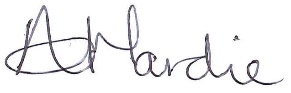 A Hardie